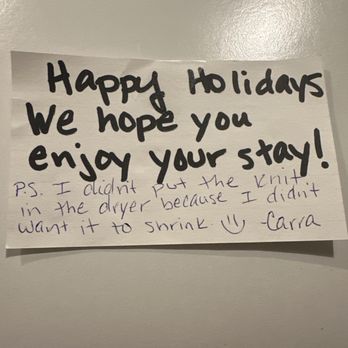 Happy Holidays
We hope you
enjoy your stay!
P.S. I didn't put the knit
in the dryer because I didn't
want it to shrink. -Carra